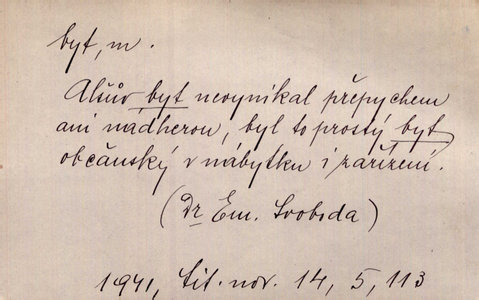 byt, m.
Alšův byt nevynikal přepychem
ani nádherou, byl to prostý byt
občanský v nábytku i zařízení.
(Dr Em. Svoboda)
1941, Lit. nov. 14, 5, 113